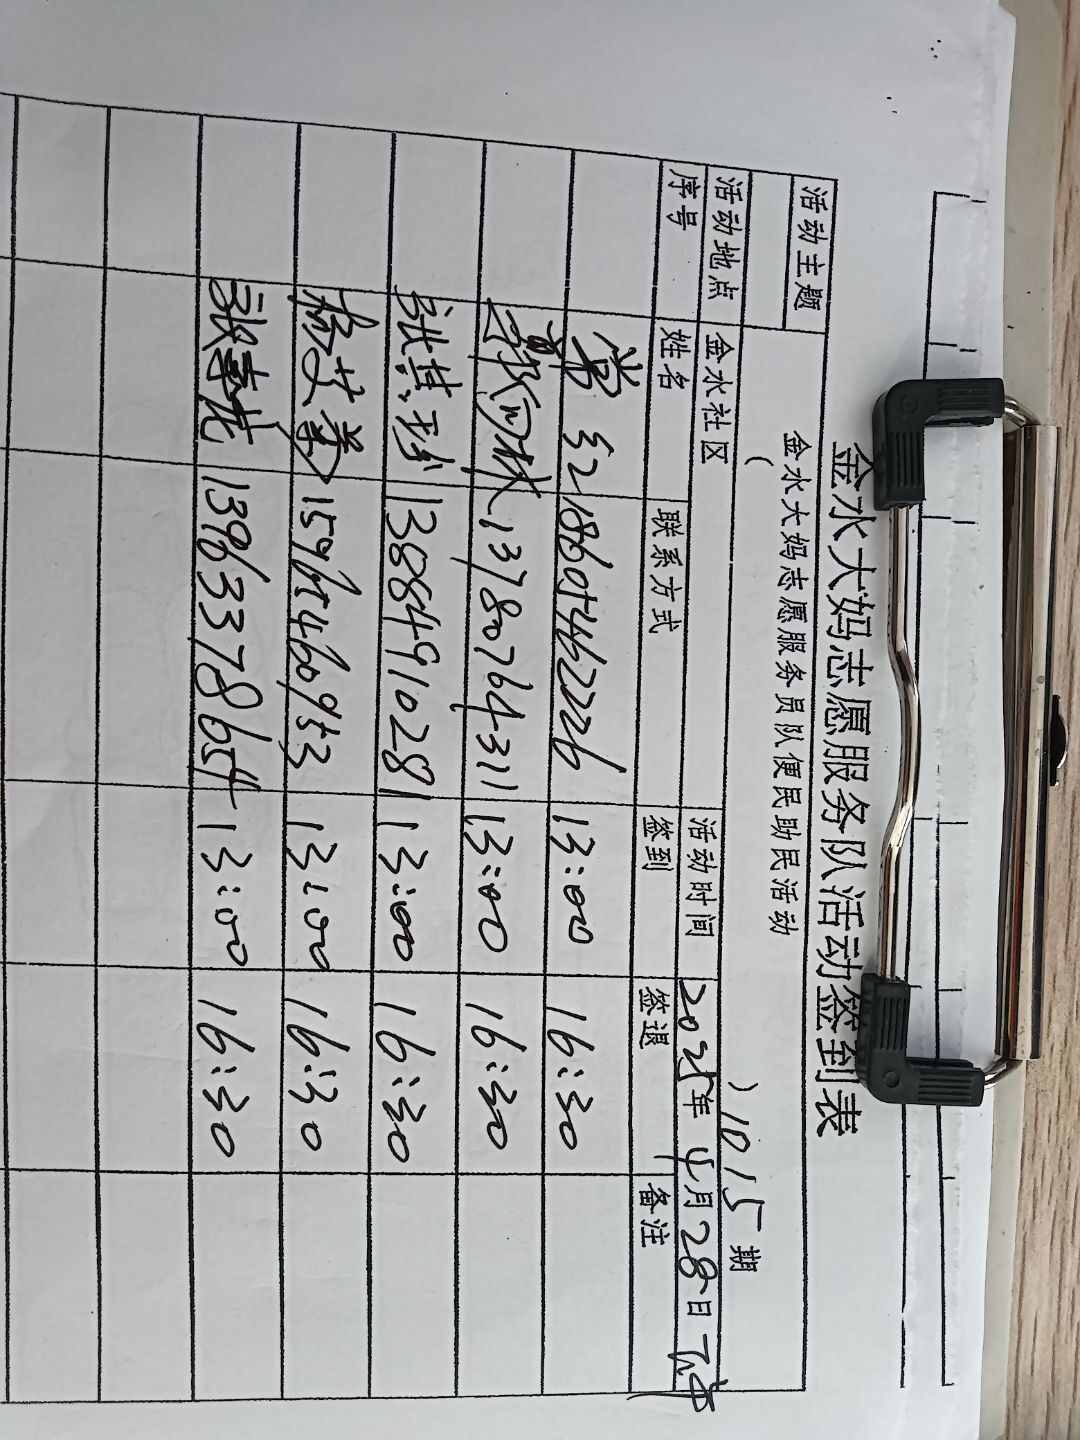 金水大妈志愿服务队活动签到表
活动主题 金水大妈志愿服务员队便民助民活动
( ) 1015期
活动地点 金水社区 活动时间 2025年4月28日下午
序号 姓名 联系方式 签到 签退 备注
18605462226 13:00 16:30
13780764311 13:00 16:30
张其珍 13884910281 13:00 16:30
15965460953 13:00 16:30
13963378654 13:00 16:30